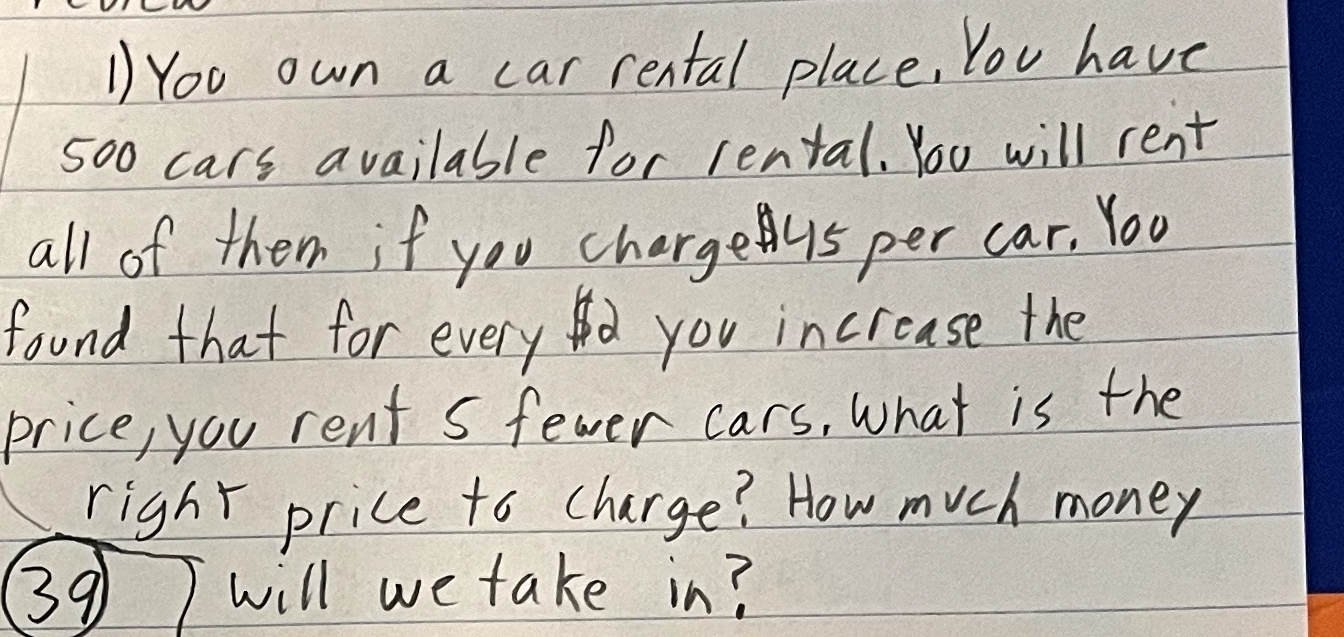 1) You own a car rental place. You have
500 cars available for rental. You will rent
all of them if you charge $45 per car. You
found that for every $2 you increase the
price, you rent 5 fewer cars. What is the
right price to charge? How much money
39 will we take in?